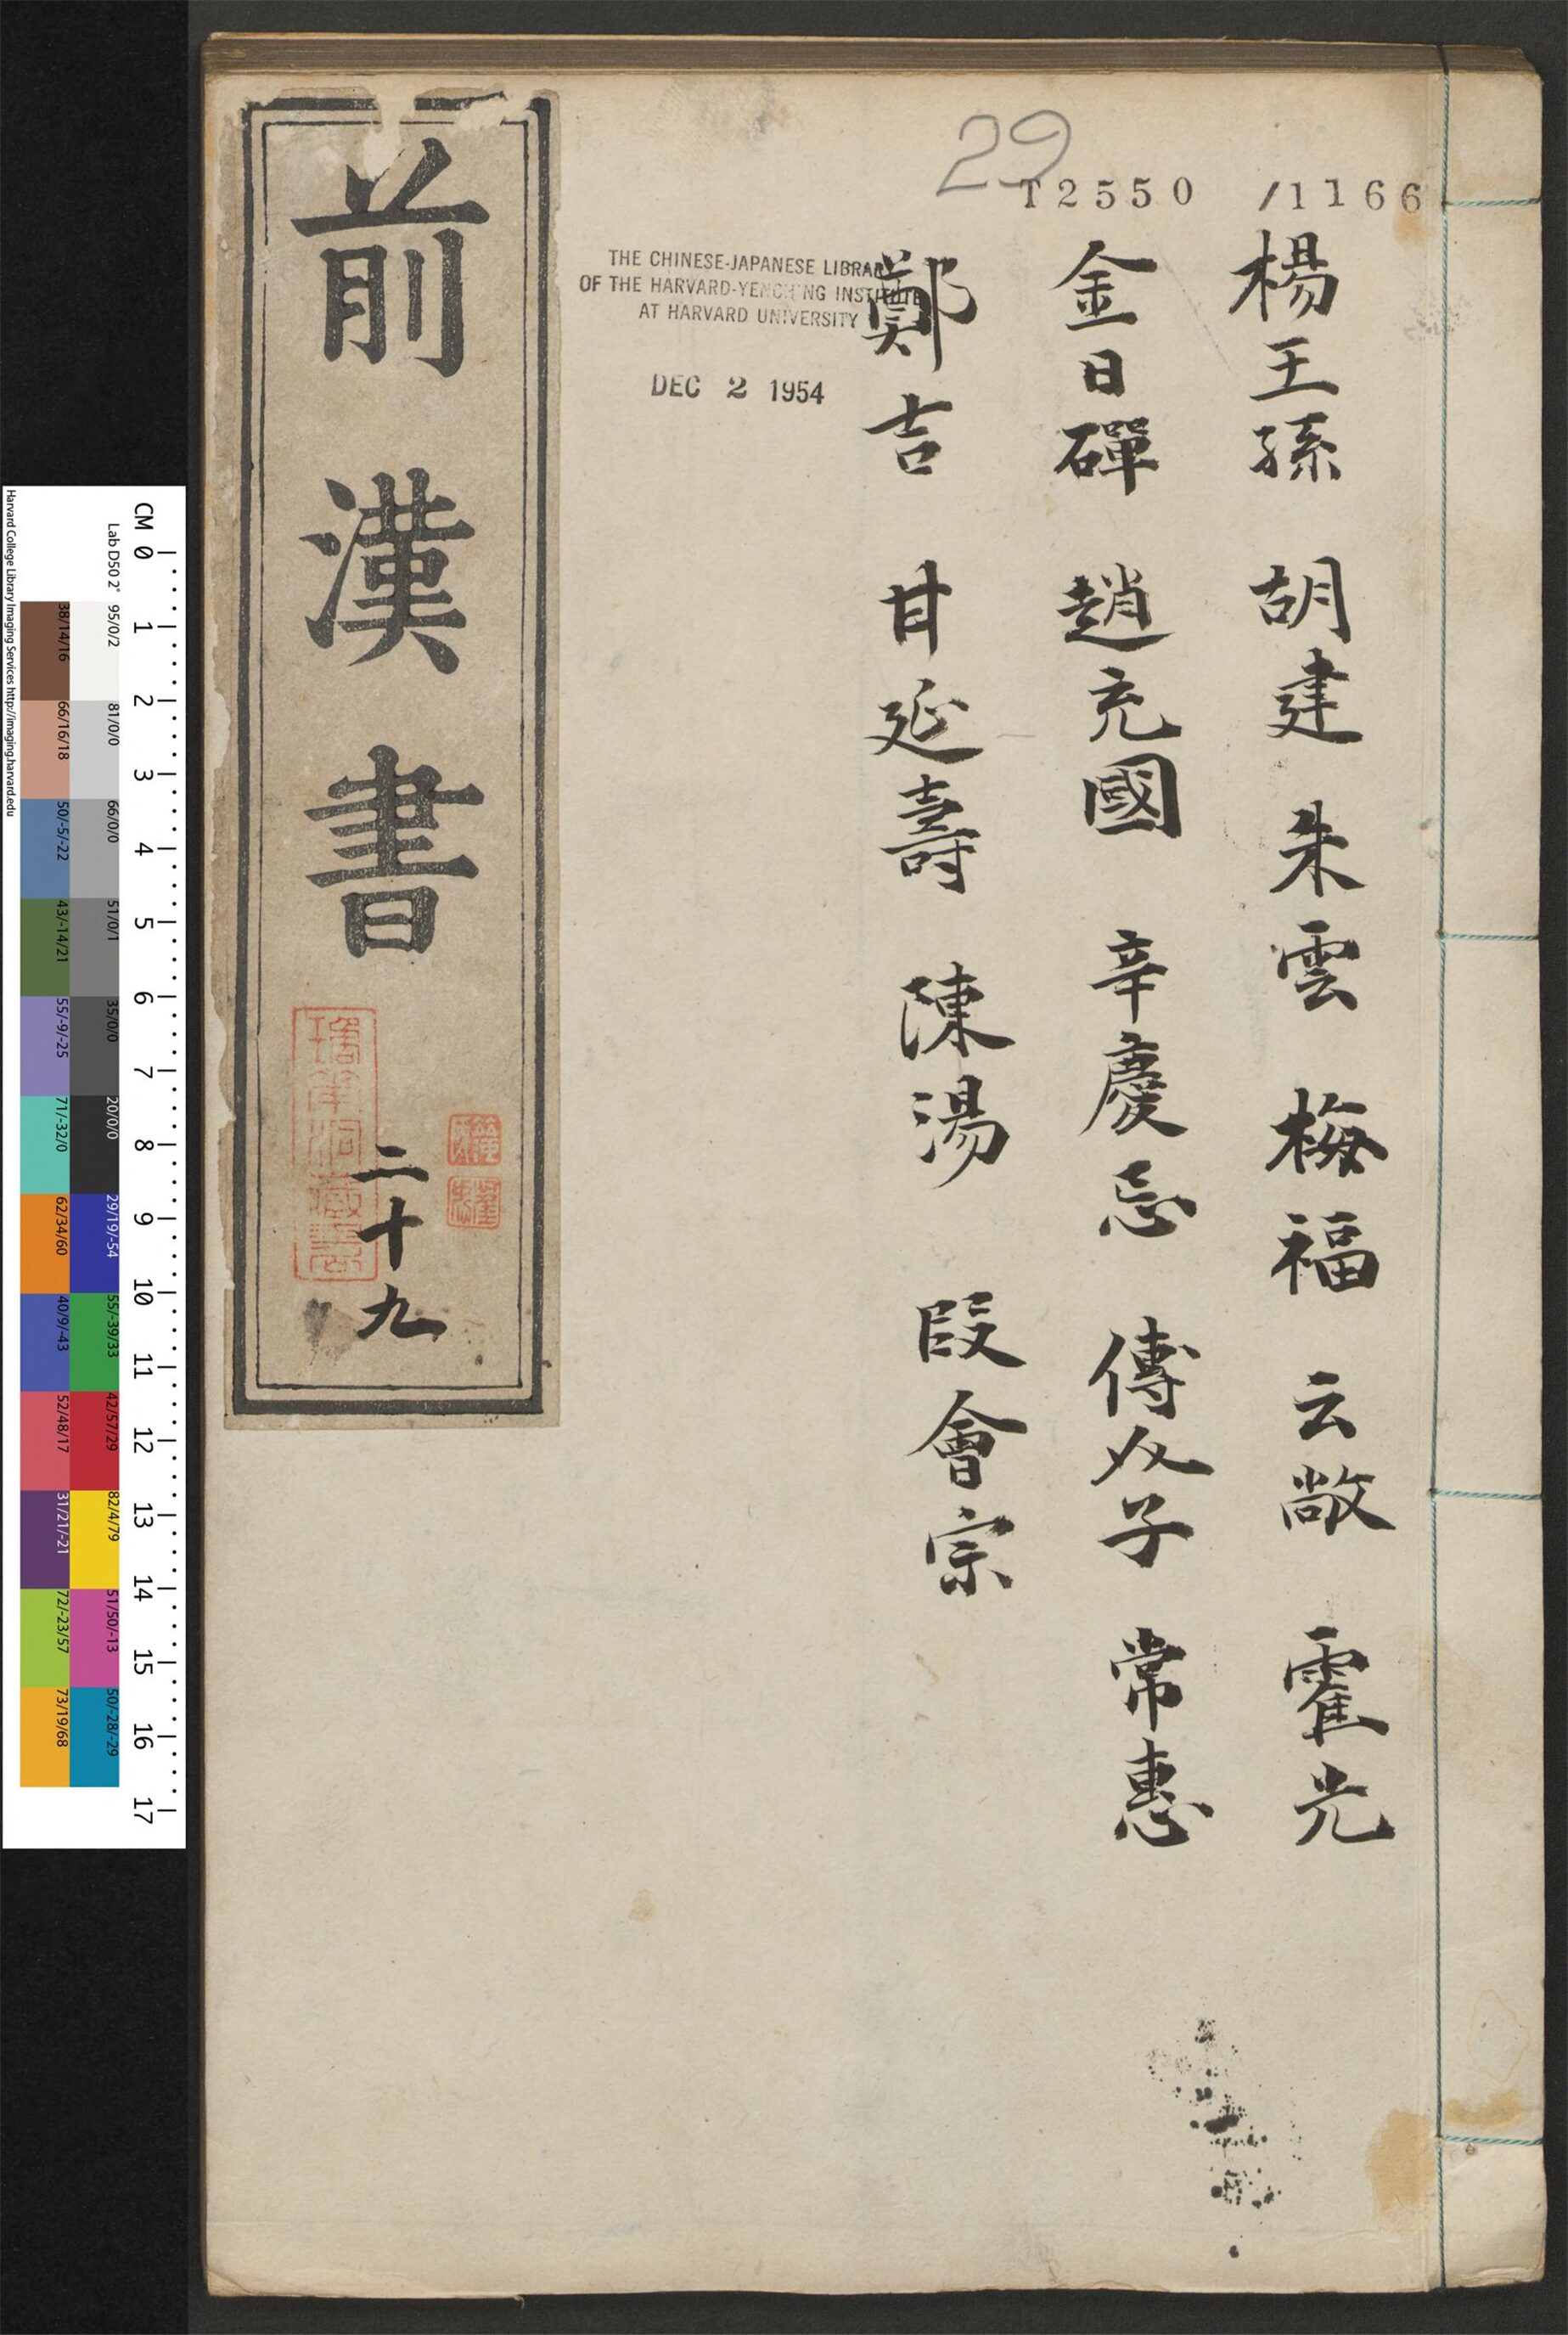 29
T2550 /1166
楊王孫 胡建 朱雲 梅福 云敞 霍光
金日磾 趙充國 辛慶忌 傅介子 常惠
鄭吉 甘延壽 陳湯 段會宗
THE CHINESE-JAPANESE LIBRARY
OF THE HARVARD-YENCHING INSTITUTE
AT HARVARD UNIVERSITY
DEC 2 1954
前漢書
二十九
CM 0 1 2 3 4 5 6 7 8 9 10 11 12 13 14 15 16 17
Lab D50 2° 95/0/2 81/0/0 66/0/0 51/0/1 35/0/0 20/0/0 29/19/-54 55/-39/33 42/57/29 82/4/79 51/50/-13 50/-28/-29
38/14/16 66/16/18 50/-5/-22 43/-14/21 55/-9/-25 71/-32/0 62/34/60 40/9/-43 52/48/17 31/21/-21 72/-23/57 73/19/68
Harvard College Library Imaging Services http://imaging.harvard.edu